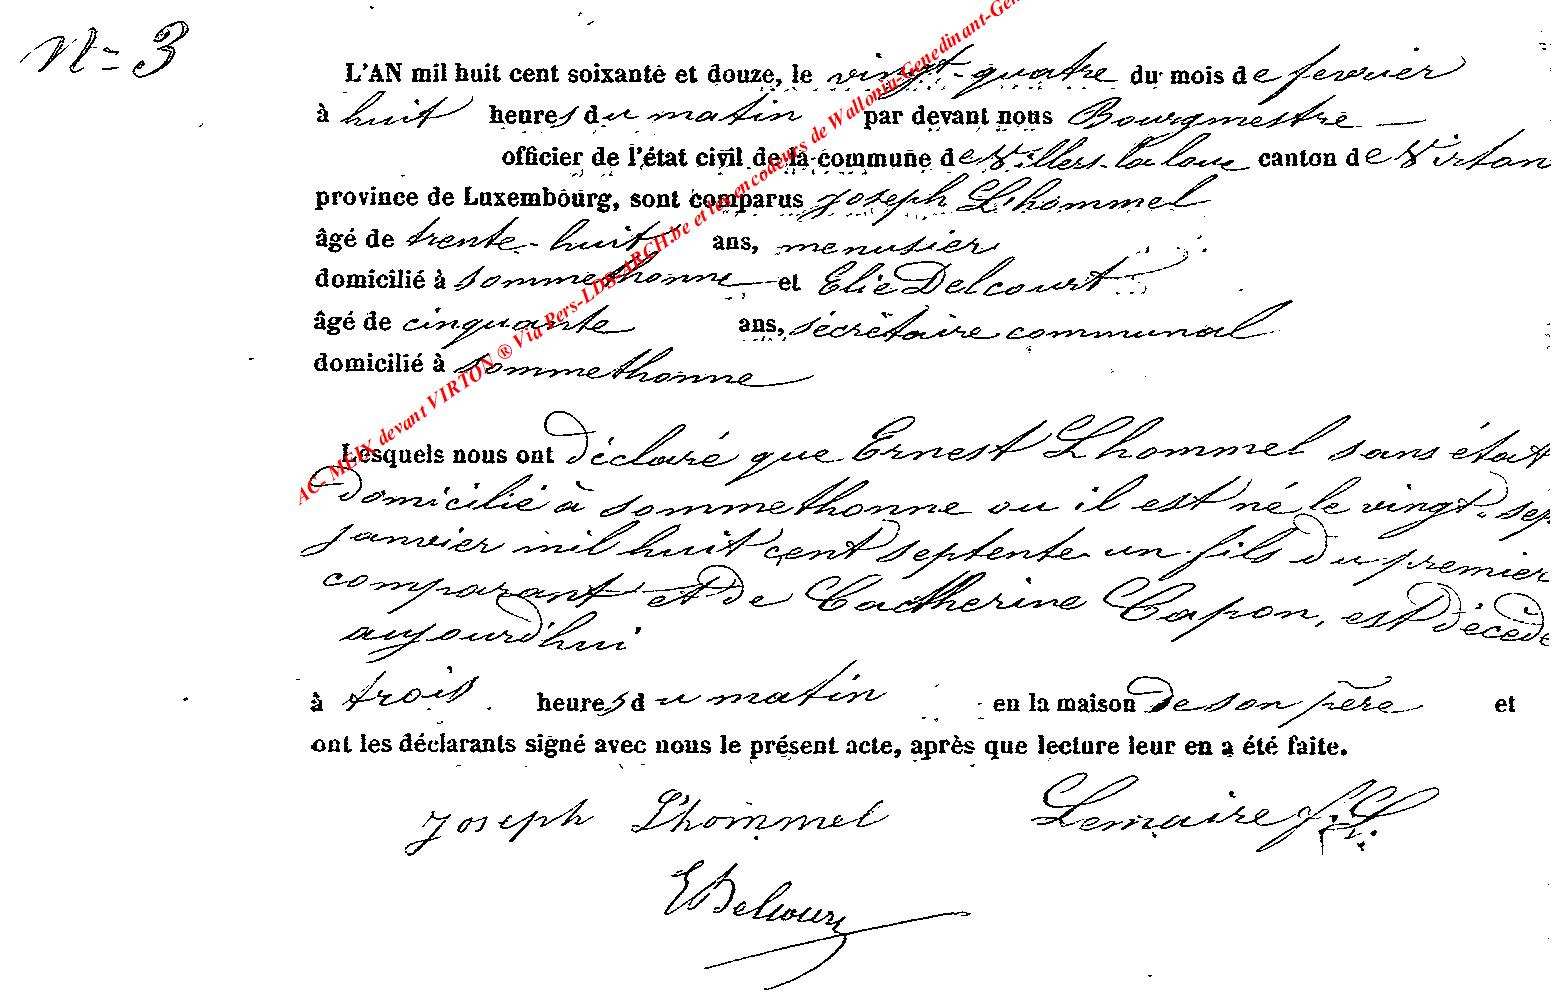 N= 3
L'AN mil huit cent soixante et douze, le vingt-quatre du mois de fevrier
à huit heures du matin par devant nous Bourgmestre —
officier de l'état civil de la commune de Villers-la-loue canton de Virton
province de Luxembourg, sont comparus Joseph Lhommel
âgé de trente-huit ans, menusier
domicilié à sommethonne et Elie Delcourt
âgé de cinquante ans, sécrétaire communal
domicilié à sommethonne
Lesquels nous ont déclaré que Ernest Lhommel sans état
domicilié à sommethonne ou il est né le vingt-sep
janvier mil huit cent septente un fils du premier
comparant et de Cactherine Capon, est décédé
aujourd'hui
à trois heures du matin en la maison de son père et
ont les déclarants signé avec nous le présent acte, après que lecture leur en a été faite.
Joseph L'hommel Lemaire
E Delcourt
AC- MEIX devant VIRTON ® Via Pers-LDS-ARCH.be et les encodeurs de Wallonia-Genedinant-Gen